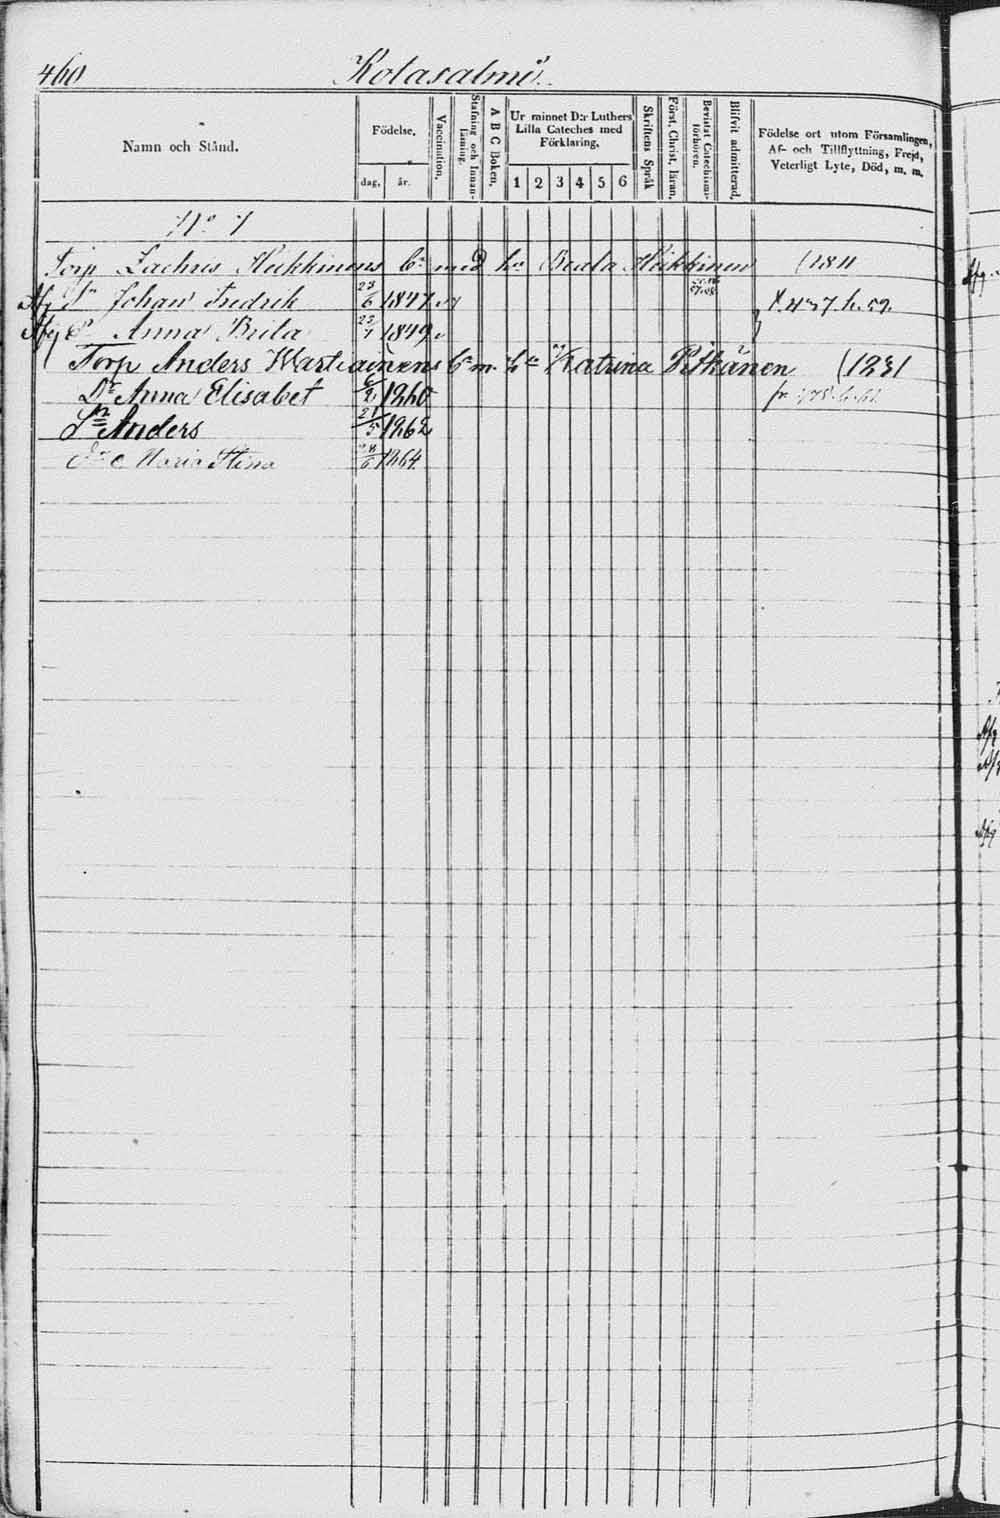 460 Kotasalmi
Namn och Stånd.
Födelse.
dag. år.
Vaccination.
Stafning och Innanläsning.
A B C Boken.
Ur minnet D:r Luthers
Lilla Cateches med
Förklaring.
1 2 3 4 5 6
Skriftens Språk
Först. Christ. läran.
Bevistat Catechismi-
förhören.
Blifvit admitterad.
Födelse ort utom Församlingen,
Af- och Tillflyttning, Frejd,
Veterligt Lyte, Död, m. m.
No 1
Torp Zachris Heikkinens Bn med hu Beata Heikkinen (1811
Afg Sn Johan Fredrik 23/6 1847
Afg Dr Anna Brita 1849
Torp Anders Wartiainens Bn m. hu Katrina Pitkänen (1831
Dr Anna Elisabet 1860
Sn Anders 21/5 1862
Dr Maria Stina 1864